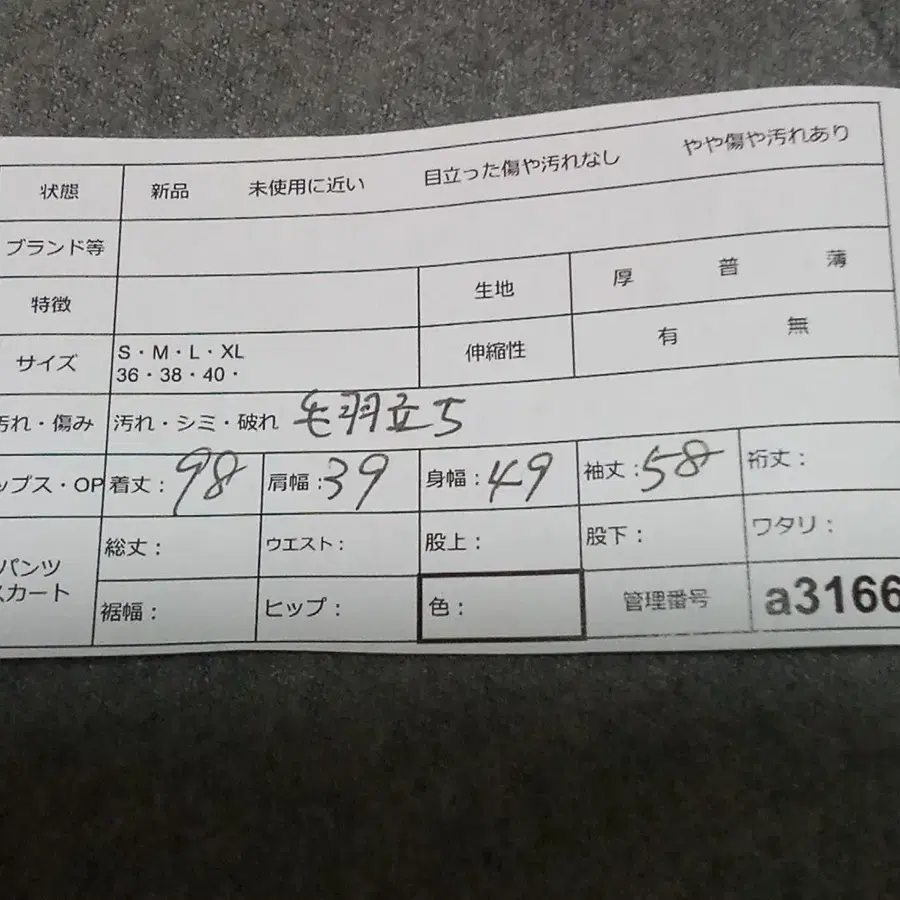 状態 新品 未使用に近い 目立った傷や汚れなし やや傷や汚れあり
ブランド等
特徴 生地 厚 普 薄
サイズ S・M・L・XL
36・38・40・ 伸縮性 有 無
汚れ・傷み 汚れ・シミ・破れ 毛羽立ち
ップス・OP 着丈：98 肩幅：39 身幅：49 袖丈：58 裄丈：
パンツ
スカート 総丈： ウエスト： 股上： 股下： ワタリ：
裾幅： ヒップ： 色： 管理番号 a3166